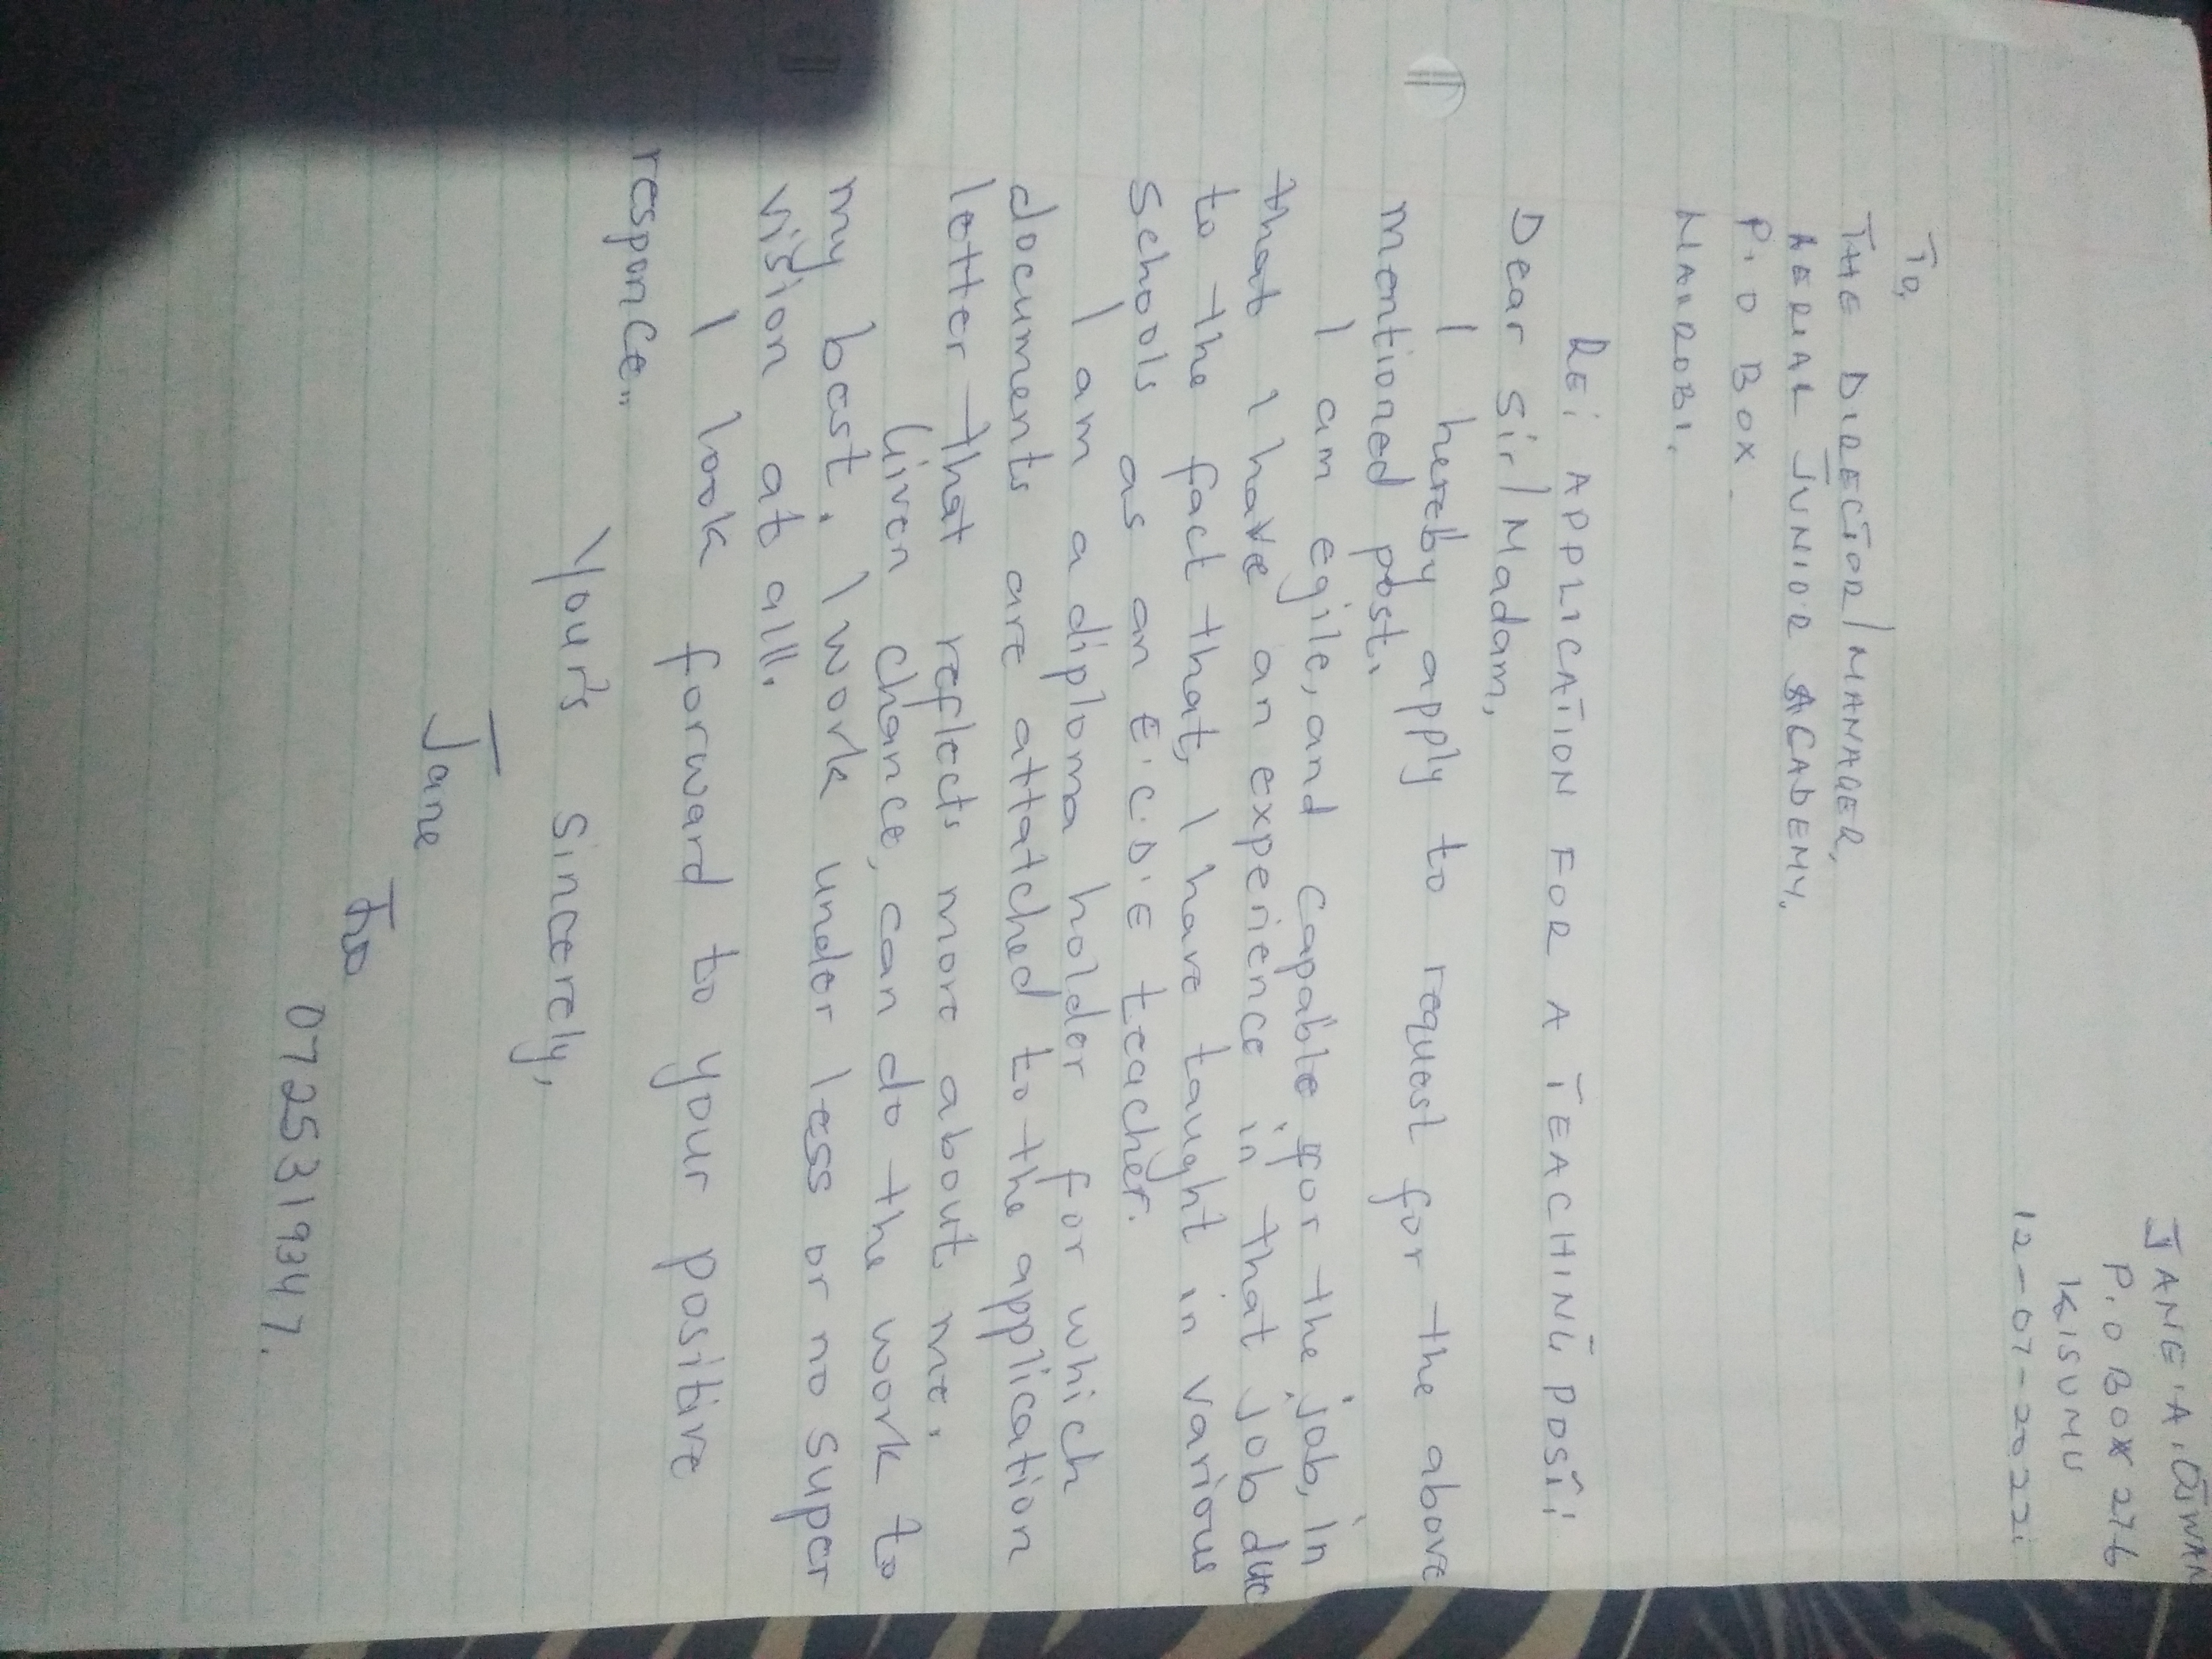 JANE A. OTWAN
P.O BOX 276
KISUMU
12-07-2022.
TO,
THE DIRECTOR/MANAGER,
AERIAL JUNIOR ACADEMY.
P.O BOX.
NAIROBI.
RE: APPLICATION FOR A TEACHING POST:
Dear Sir/Madam,
I hereby apply to request for the above
mentioned post.
I am egile, and capable for the job, in
that I have an experience in that job due
to the fact that, I have taught in various
schools as an E.C.D.E teacher.
I am a diploma holder for which
documents are attatched to the application
letter that reflects more about me.
Given chance, can do the work to
my best. I work under less or no super
vision at all.
I look forward to your positive
responce..
Your's sincerely,
Jane
0725319347.